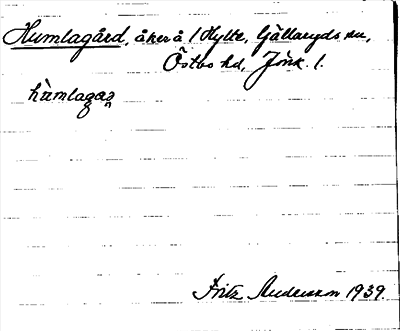 Humlagård, åker å 1 Hylte, Gällaryds sn,
Östbo hd, Jönk. l.
Fritz Andersson 1939.